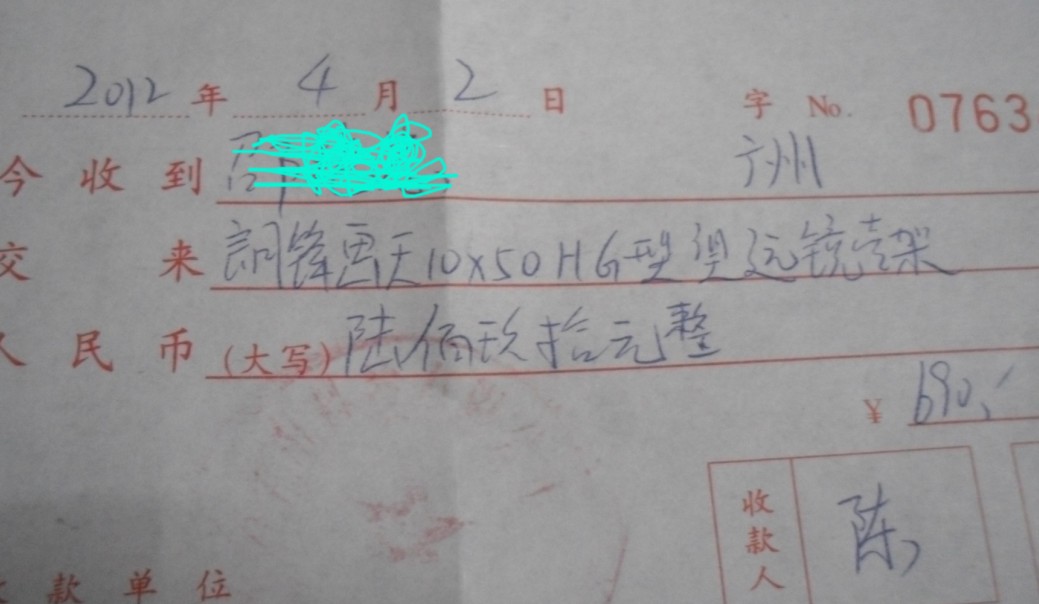 2012年4月2日 字 No. 0763
今收到 广州
交 来 锋 天10x50HG型望远镜 架
人民币(大写)陆佰玖拾元整
¥ 690
收款人 陈
款单位